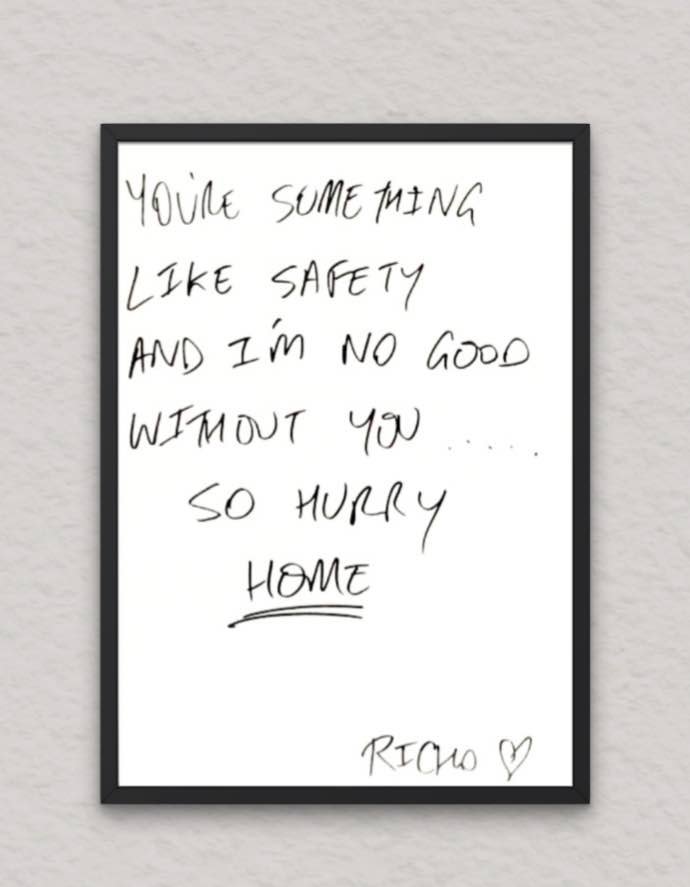 YOU'RE SOMETHING
LIKE SAFETY
AND I'M NO GOOD
WITHOUT YOU .....
SO HURRY
HOME
RICHO ♡